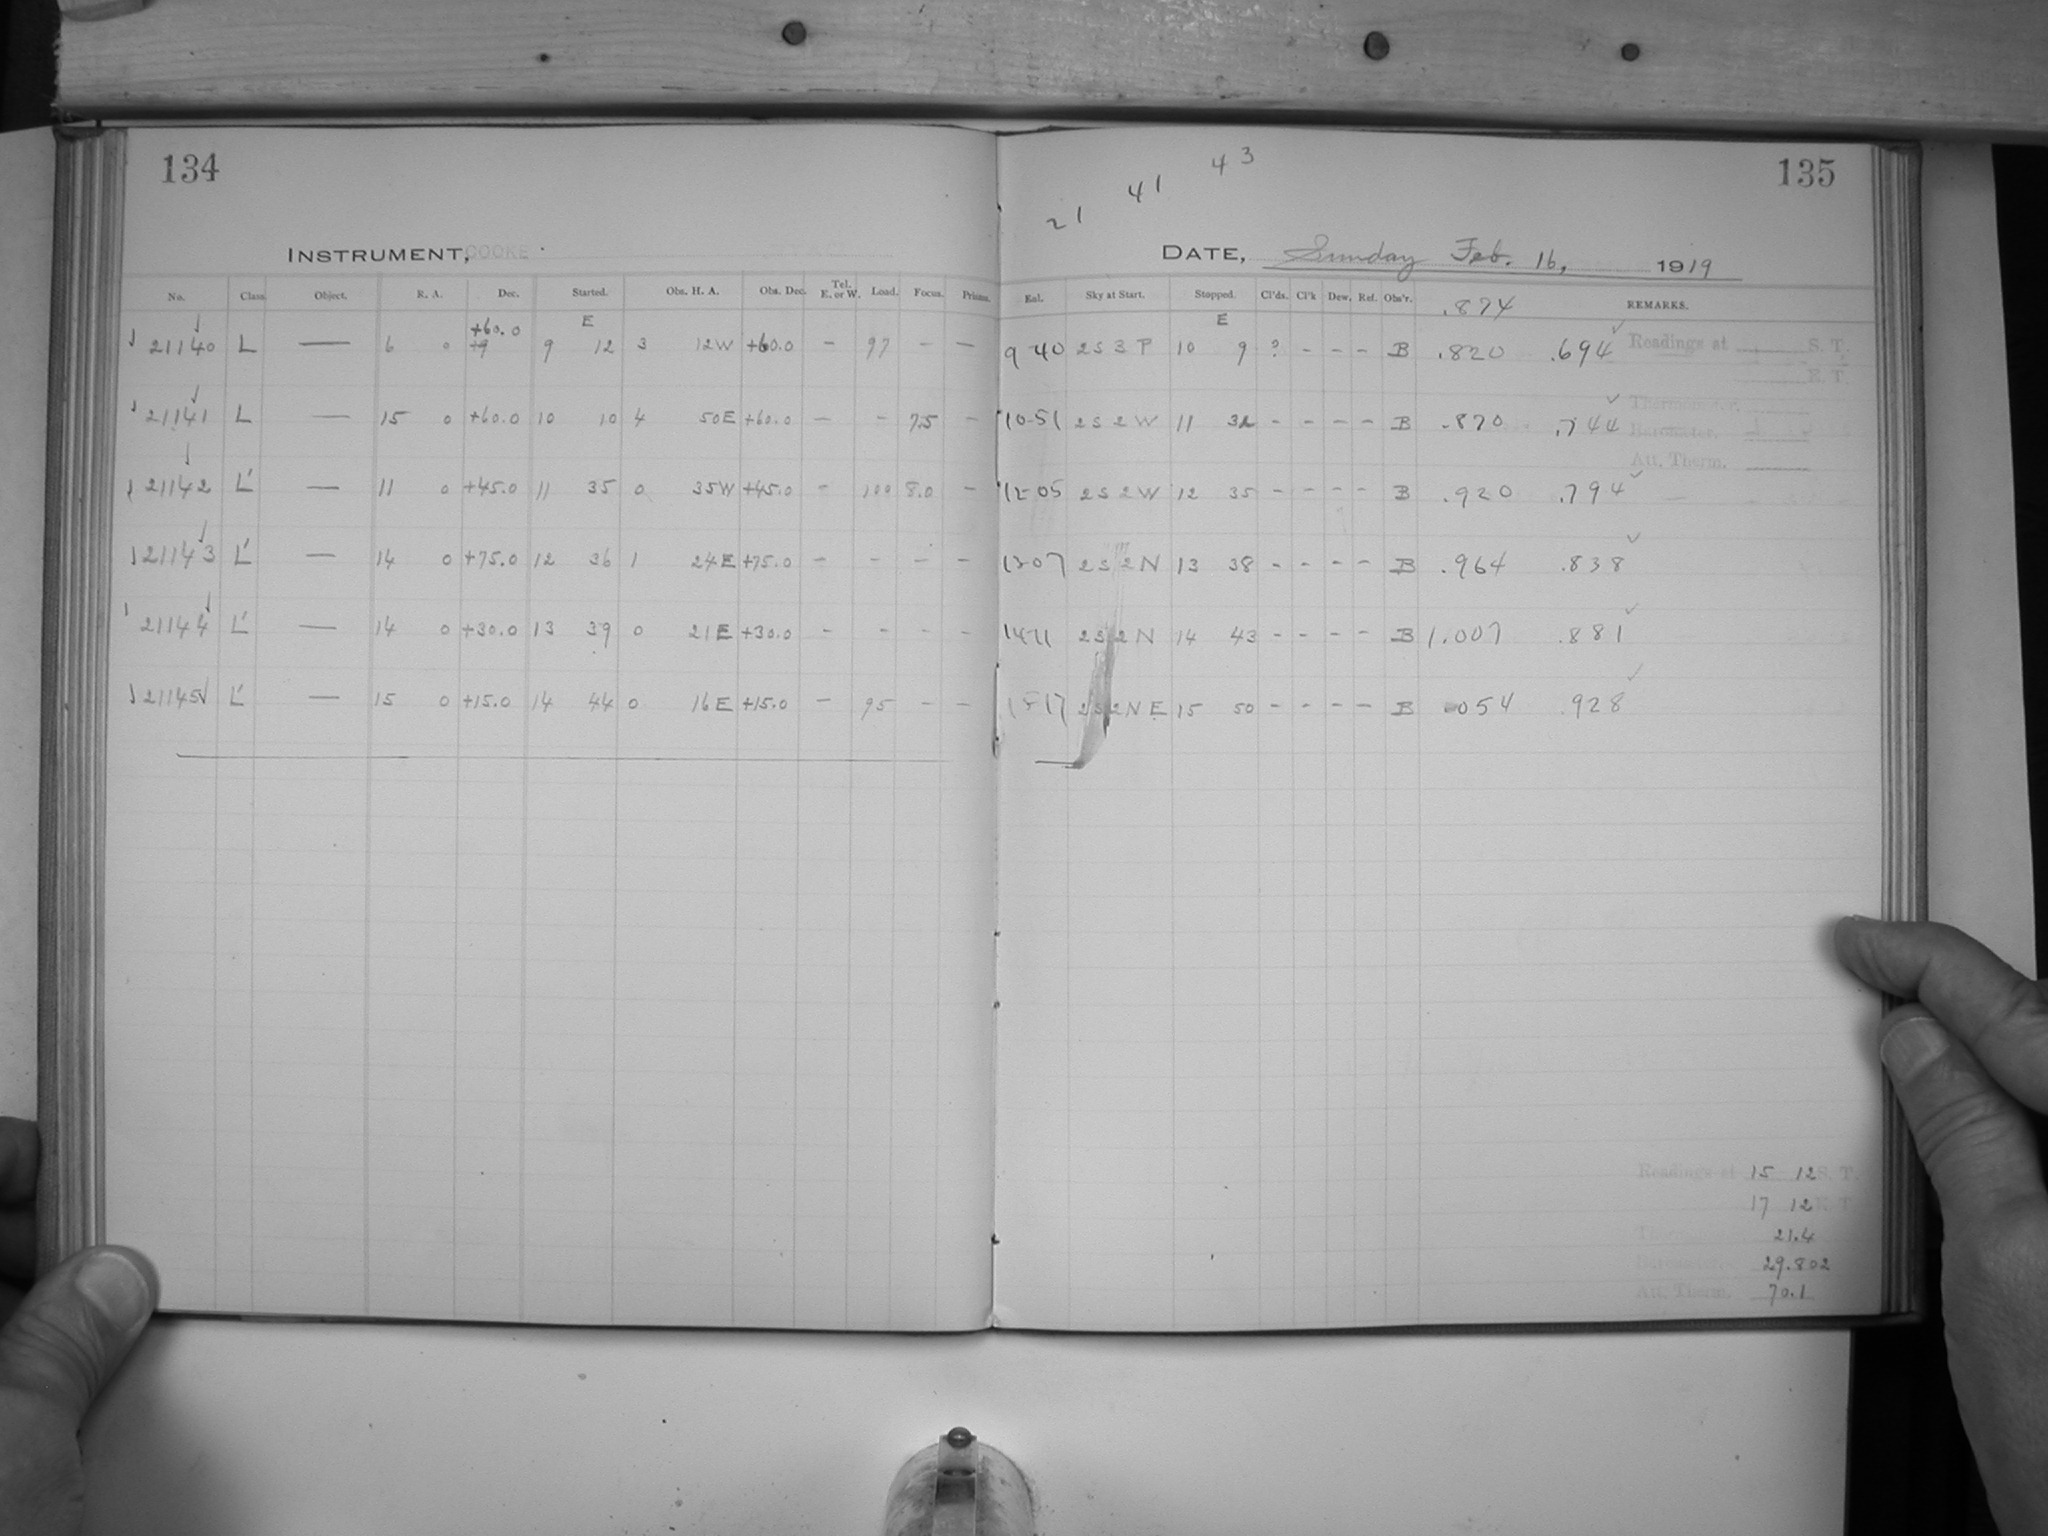 134
INSTRUMENT, COOKE
No. Class. Object. R. A. Dec. Started. Obs. H. A. Obs. Dec. Tel. E. or W. Load. Focus. Prisms.
E
+60.0
21140 L — 6 0 +9 9 12 3 12W +60.0 - 97 - -
21141 L — 15 0 +60.0 10 10 4 50E +60.0 - - 7.5 -
21142 L' — 11 0 +45.0 11 35 0 35W +45.0 - 100 8.0 -
21143 L' — 14 0 +75.0 12 36 1 24E +75.0 - - - -
21144 L' — 14 0 +30.0 13 39 0 21E +30.0 - - - -
21145 L' — 15 0 +15.0 14 44 0 16E +15.0 - 95 - -
135
43
41
21
DATE, Sunday Feb. 16, 1919
Sky at Start. Stopped. Cl'ds. Cl'k Dew. Ref. Obs'r. .874 REMARKS.
E
9 40 2S 3 P 10 9 ? - - - B .820 .694 Readings at S. T.
E. T.
10-51 2S 2 W 11 32 - - - - B .870 .744 Thermometer.
Barometer.
Att. Therm.
12-05 2S 2 W 12 35 - - - - B .920 .794
1307 2S 2 N 13 38 - - - - B .964 .838
1411 2S 2 N 14 43 - - - - B 1.007 .881
1517 2S 2 N E 15 50 - - - - B 054 .928
Readings at 15 12 S. T.
17 12 E. T.
21.4
Barometer. 29.802
Att. Therm. 70.1